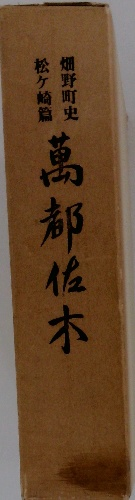 畑野町史
松ケ崎篇
萬都佐木